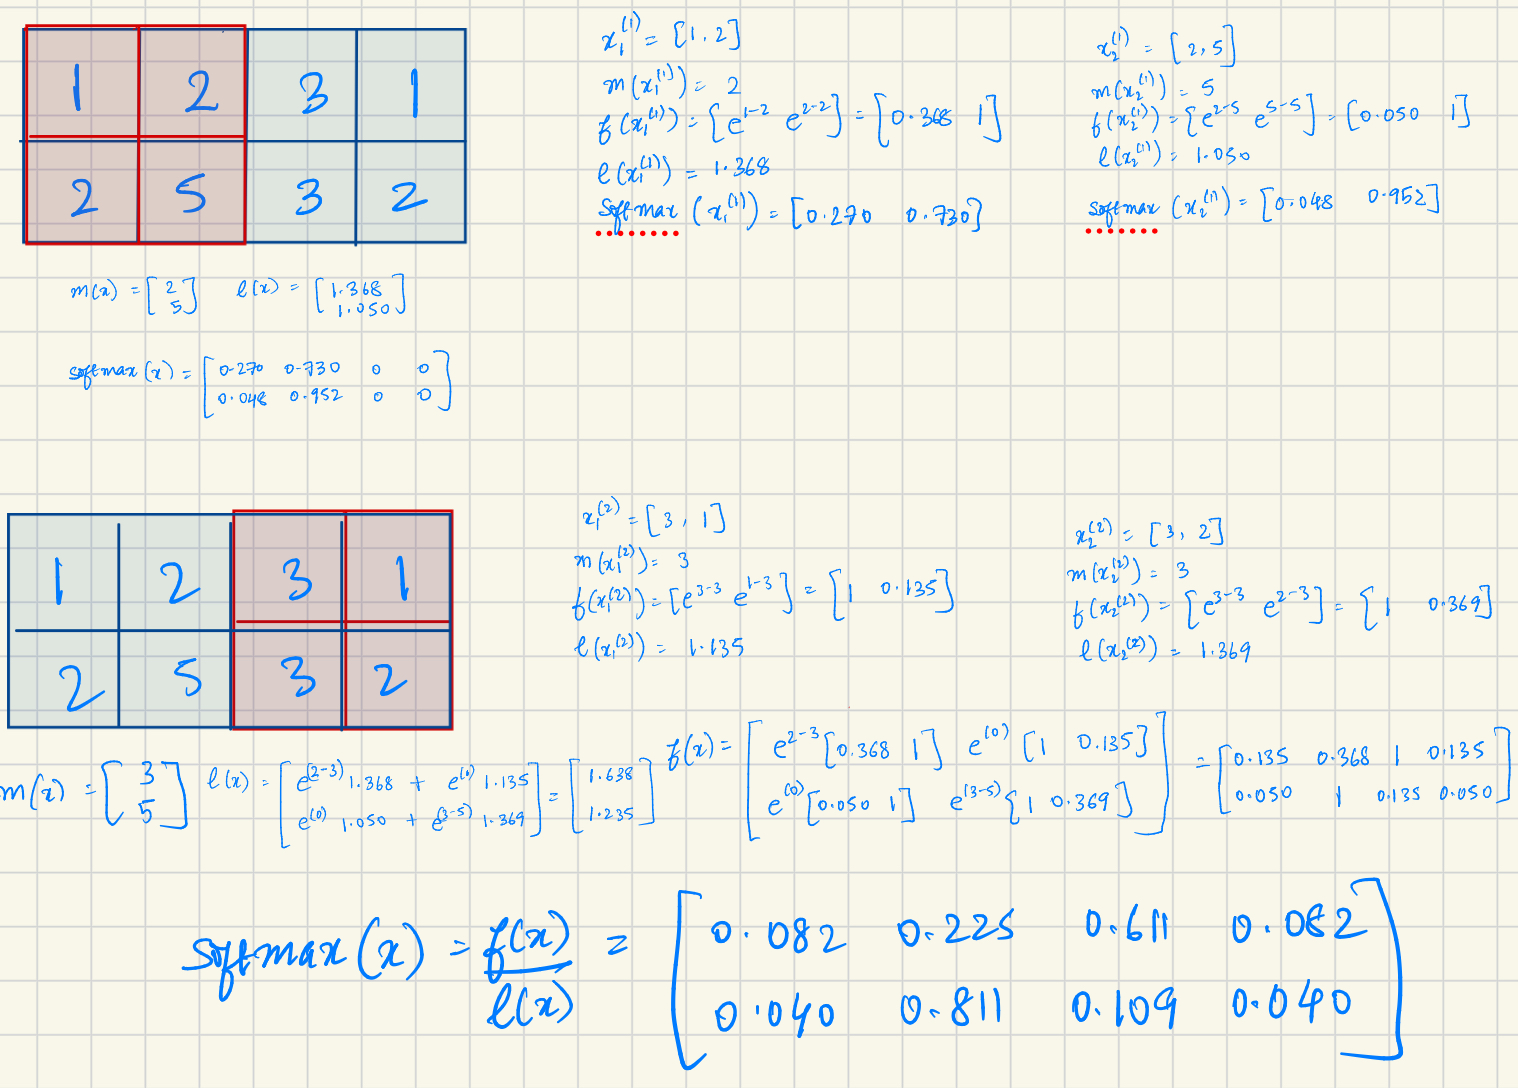 1 2 3 1
2 5 3 2
x₁⁽¹⁾ = [1, 2]
m(x₁⁽¹⁾) = 2
f(x₁⁽¹⁾) = [e¹⁻² e²⁻²] = [0.368 1]
l(x₁⁽¹⁾) = 1.368
softmax (x₁⁽¹⁾) = [0.270 0.730]
x₂⁽¹⁾ = [2, 5]
m(x₂⁽¹⁾) = 5
f(x₂⁽¹⁾) = [e²⁻⁵ e⁵⁻⁵] = [0.050 1]
l(x₂⁽¹⁾) = 1.050
softmax (x₂⁽¹⁾) = [0.048 0.952]
m(x) = [2 l(x) = [1.368
5] 1.050]
softmax(x) = [0.270 0.730 0 0
0.048 0.952 0 0]
1 2 3 1
2 5 3 2
x₁⁽²⁾ = [3, 1]
m(x₁⁽²⁾) = 3
f(x₁⁽²⁾) = [e³⁻³ e¹⁻³] = [1 0.135]
l(x₁⁽²⁾) = 1.135
x₂⁽²⁾ = [3, 2]
m(x₂⁽²⁾) = 3
f(x₂⁽²⁾) = [e³⁻³ e²⁻³] = [1 0.369]
l(x₂⁽²⁾) = 1.369
m(x) = [3
5]
l(x) = [e⁽²⁻³⁾ 1.368 + e⁽⁰⁾ 1.135] = [1.638
e⁽⁰⁾ 1.050 + e⁽³⁻⁵⁾ 1.369] 1.235]
f(x) = [e²⁻³ [0.368 1] e⁽⁰⁾ [1 0.135] = [0.135 0.368 1 0.135
e⁽⁰⁾ [0.050 1] e⁽³⁻⁵⁾ [1 0.369]] 0.050 1 0.135 0.050]
softmax(x) = f(x)/l(x) = [0.082 0.225 0.611 0.082
0.040 0.811 0.109 0.040]